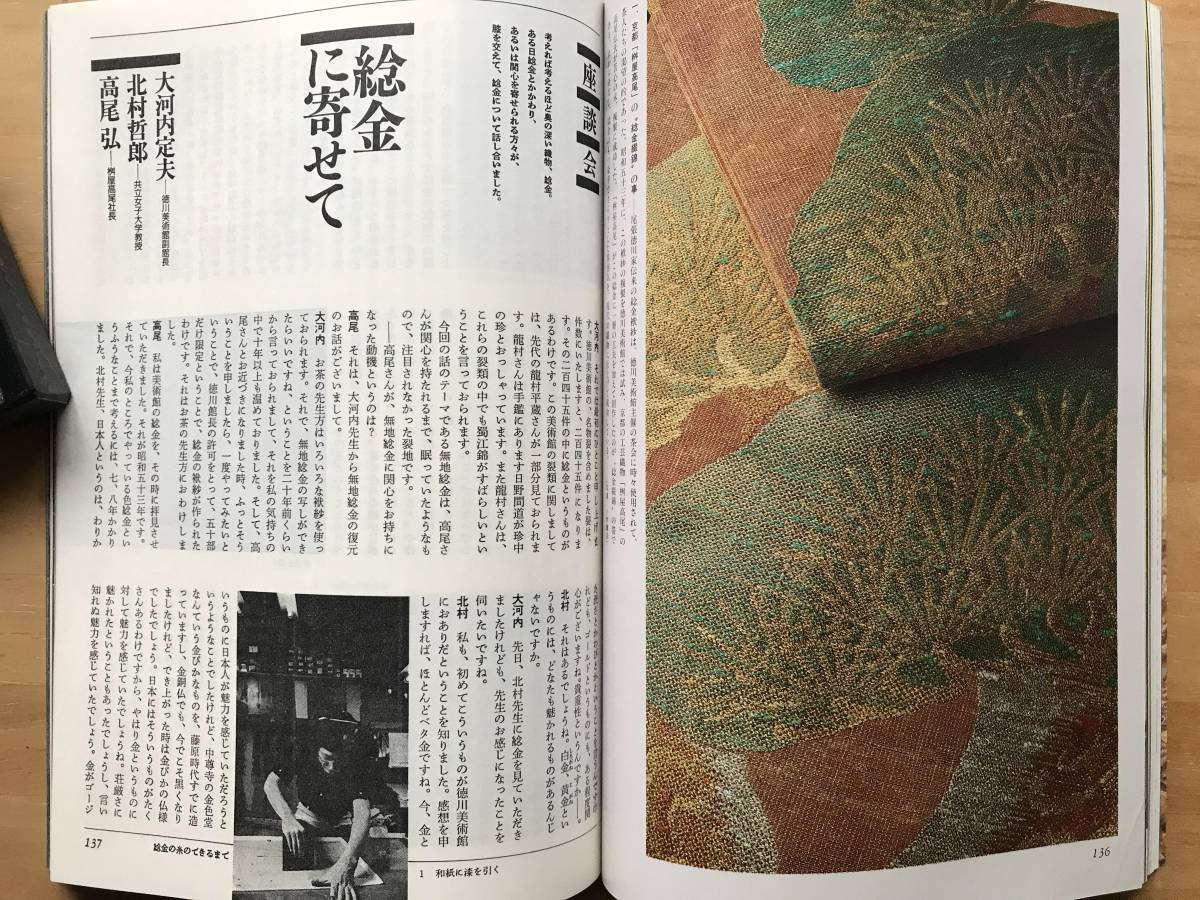 一、京都「桝屋高尾」の〝䋻金綴錦〟の事――尾張徳川家伝来の䋻金袱紗は、徳川美術館主催の茶会に時々使用されて、
茶人たちの羨望の的であった。昭和五十三年に、この袱紗の複製を徳川美術館では試み、京都の工芸織物「桝屋高尾」の
136
座談会
考えれば考えるほど奥の深い織物、䋻金。
ある日䋻金とかかわり、
あるいは関心を寄せられる方々が、
膝を交えて、䋻金について話し合いました。
䋻金
に寄せて
大河内定夫――徳川美術館副館長
北村哲郎――共立女子大学教授
高尾 弘――桝屋高尾社長
す。徳川美術館の、名物裂を含めました裂は、
件数にいたしますと、二百四十五件になりま
す。その二百四十五件の中に䋻金というものが
あるわけです。この美術館の裂類に関しまして
は、先代の龍村平蔵さんが一部分見ておられま
す。龍村さんは手鑑にあります日野間道が珍中
の珍とおっしゃっています。また龍村さんは、
これらの裂類の中でも蜀江錦がすばらしいとい
うことを言っておられます。
今回の話のテーマである無地䋻金は、高尾さ
んが関心を持たれるまで、眠っていたようなも
ので、注目されなかった裂地です。
――高尾さんが、無地䋻金に関心をお持ちに
なった動機というのは?
高尾 それは、大河内先生から無地䋻金の復元
のお話がございまして。
大河内 お茶の先生方はいろいろな袱紗を使っ
ておられます。それで、無地䋻金の写しができ
たらいいですね、ということを二十年前くらい
から言っておられまして、それを私の気持ちの
中で十年以上も温めておりました。そして、高
尾さんとお近づきになりました時、ふっとそう
いうことを申しましたら、一度やってみたいと
いうことで、徳川館長の許可をとって、五十部
だけ限定ということで、䋻金の袱紗が作られた
わけです。それはお茶の先生方におわけしま
した。
高尾 私は美術館の䋻金を、その時に拝見させ
ていただきました。それが昭和五十三年です。
それで、今私のところでやっている色䋻金とい
うふうなことまで考えるには、七、八年かかり
ました。北村先生、日本人というのは、わりか
れども、ゴールドというものにも、ある程度関
心がございますね。貴重性というんですか――。
北村 それはあるでしょうね。白金、黄金とい
うものには、どなたも魅かれるものがあるんじ
ゃないですか。
大河内 先日、北村先生に䋻金を見ていただき
ましたけれども、先生のお感じになったことを
伺いたいですね。
北村 私も、初めてこういうものが徳川美術館
におありだということを知りました。感想を申
しますれば、ほとんどベタ金ですね。今、金と
いうものに日本人が魅力を感じていただろうと
いうようなことでしたけれど、中尊寺の金色堂
なんていう金ぴかなものを、藤原時代すでに造
っていますし、金銅仏でも、今でこそ黒くなり
ましたけれど、でき上がった時は金ぴかの仏様
でしたでしょう。日本にはそういうものがたく
さんあるわけですから、やはり金というものに
対して魅力を感じていたでしょうね。荘厳さに
魅かれたということもあったでしょうし、言い
知れぬ魅力を感じていたでしょう。金がゴージ
1 和紙に漆を引く
䋻金の糸のできるまで
137